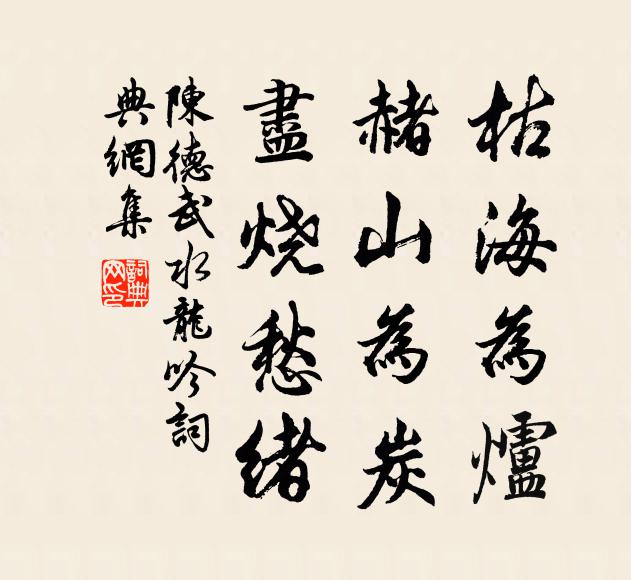 枯海為爐
赭山為炭
盡燒愁緒
陳德武水龍吟詞
典網集
詞典
网印